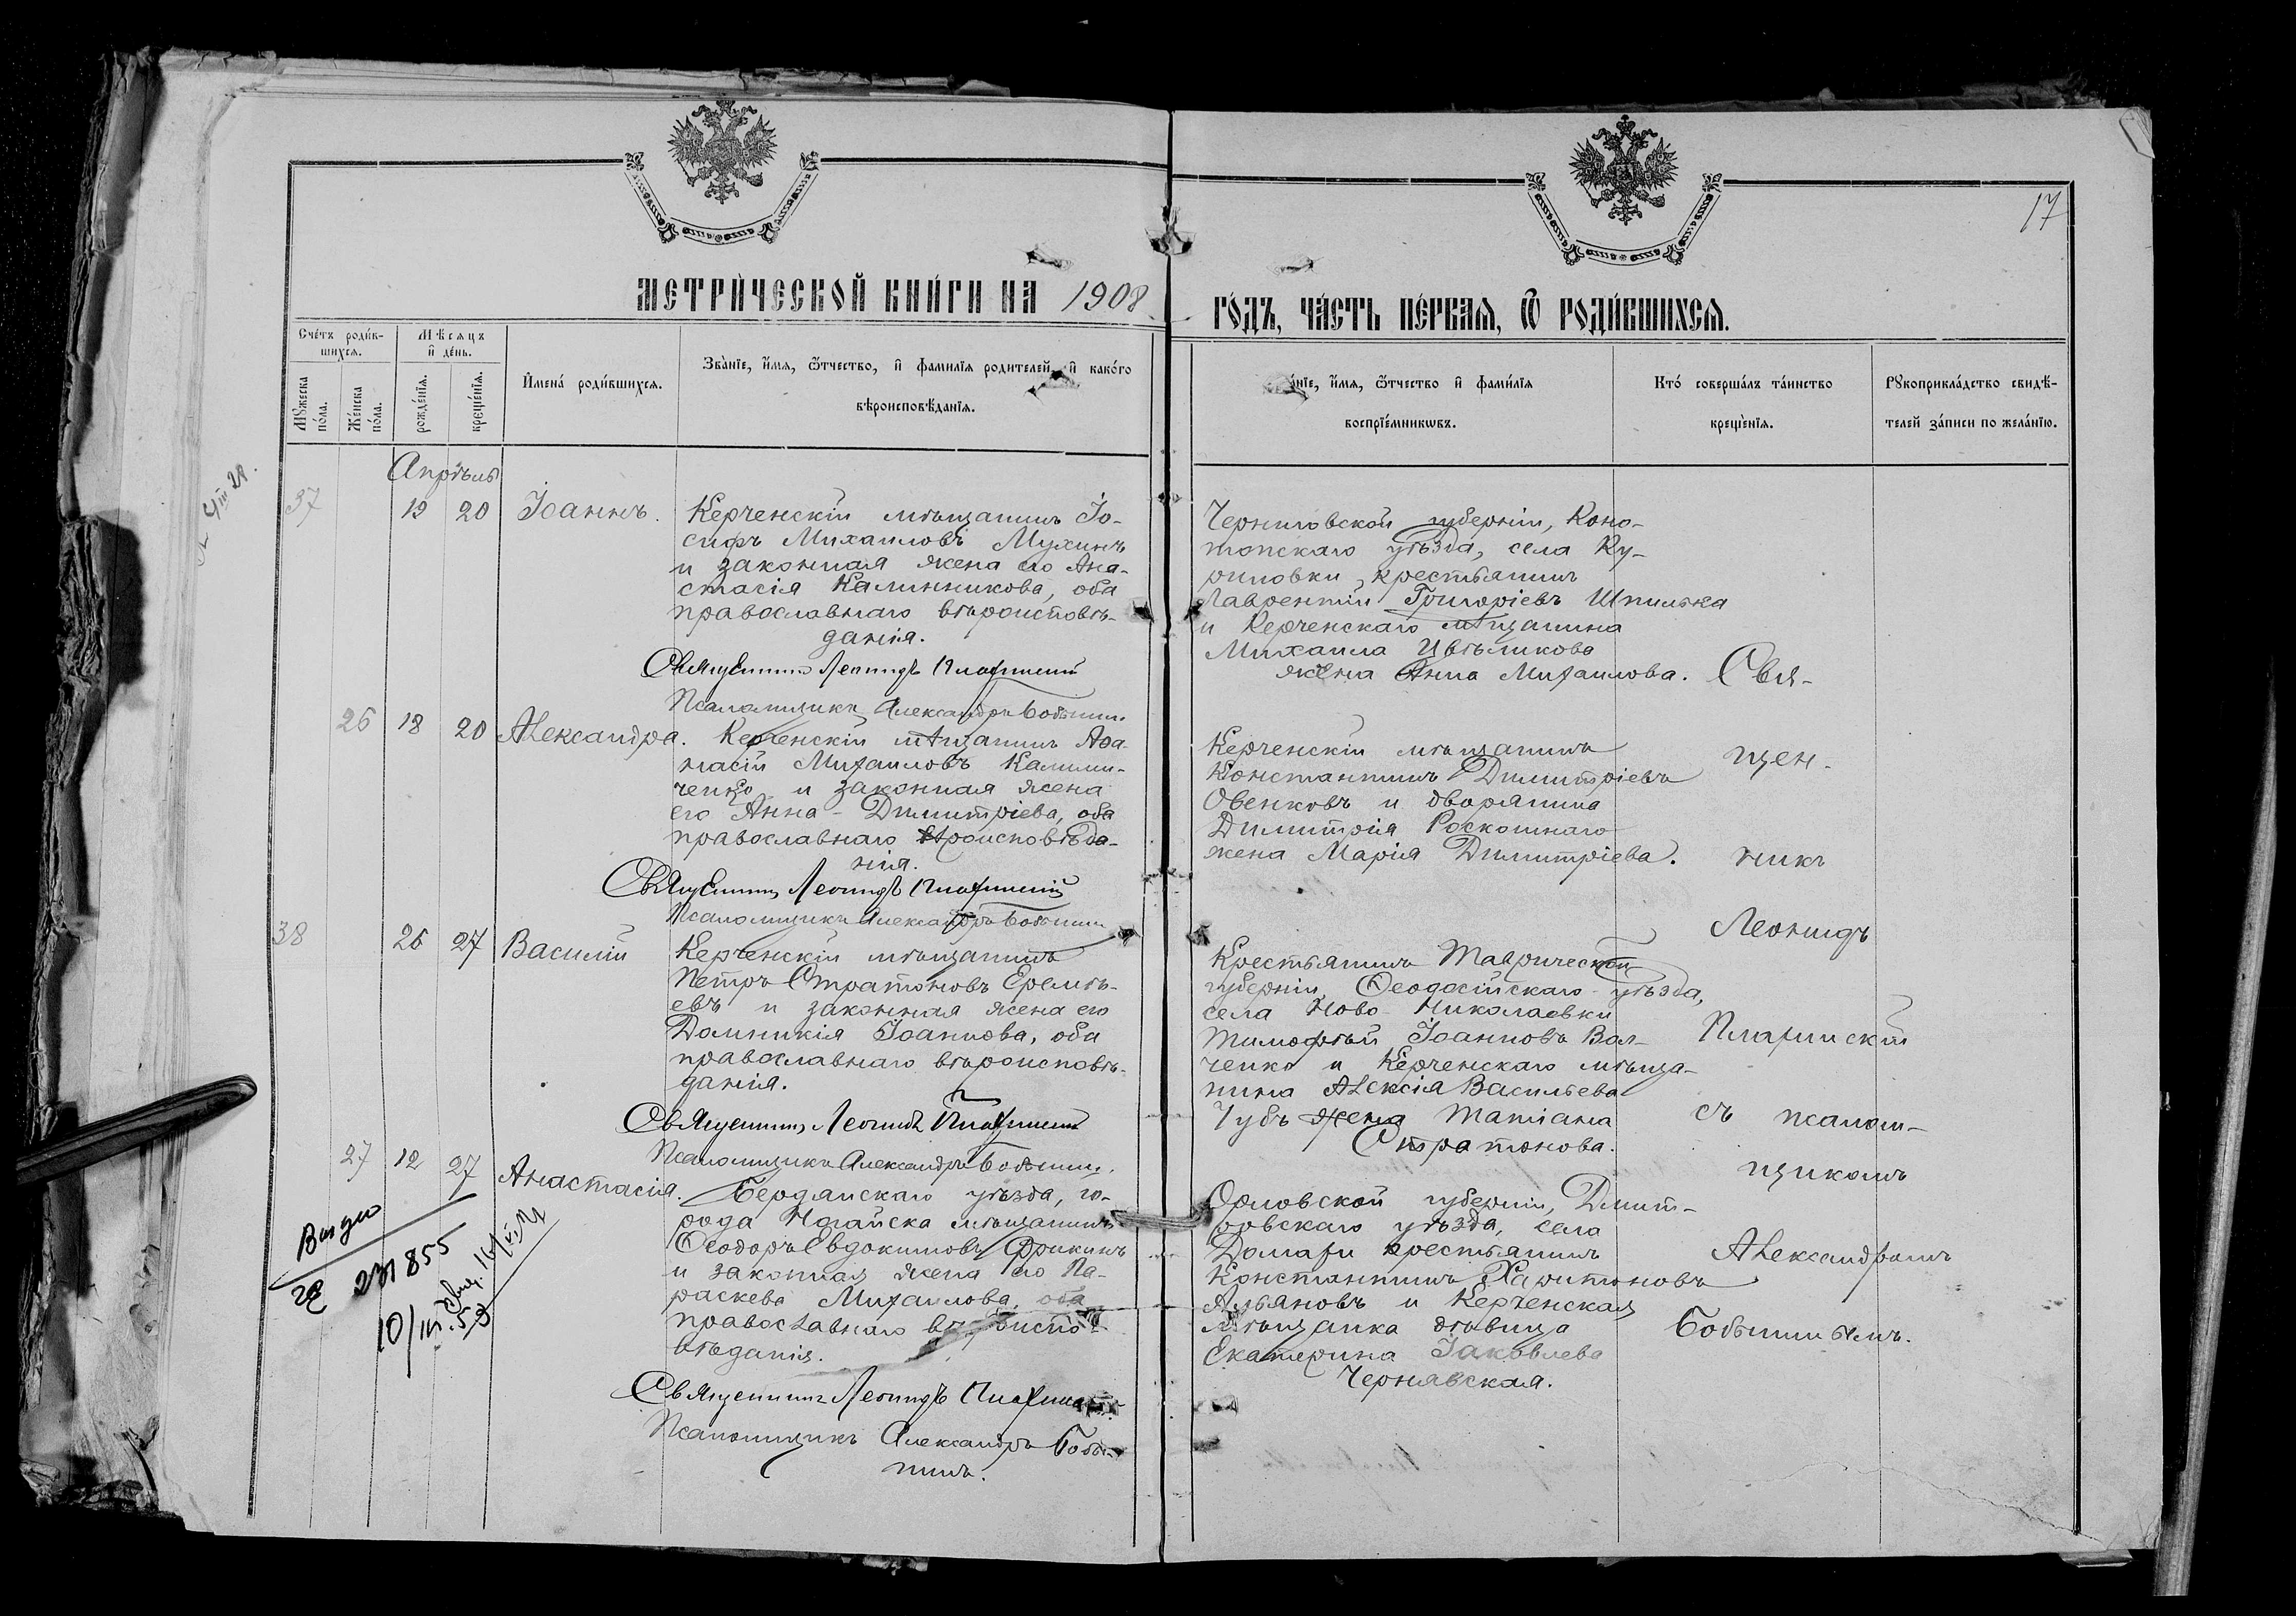 МЕТРИЧЕСКОЙ КНИГИ НА 1908
ГОДЪ, ЧАСТЬ ПЕРВАЯ, Ѿ РОДИВШИХСЯ.
17
Счетъ родив-
шихся.
Мѣсяцъ
и день.
Мужеска
пола.
Женска
пола.
рожденія.
крещенія.
Имена родившихся.
Званіе, имя, ѿтчество, и фамилія родителей, и какого
вѣроисповѣданія.
аніе, имя, ѿтчество и фамилія
воспріемникѡвъ.
Кто совершалъ таинство
крещенія.
Рукоприкладство свидѣ-
телей записи по желанію.
Апрѣль
37 19 20 Іоаннъ.
Керченскій мѣщанинъ Іо-
сифъ Михаиловъ Мухинъ
и законная жена его Ана-
стасія Калинникова, оба
православнаго вѣроисповѣ-
данія.
Священникъ Леонидъ
Псаломщикъ Александръ Бобынинъ.
Черниговской губерніи, Коно-
топскаго уѣзда, села Ку-
риловки, крестьянинъ
Лаврентій Григоріевъ Шпилька
и Керченскаго мѣщанина
Михаила Цвѣликова
жена Анна Михаилова.
26 18 20 Александра.
Керченскій мѣщанинъ Аѳа-
насій Михаиловъ Калини-
ченко и законная жена
его Анна Димитріева, оба
православнаго вѣроисповѣда-
нія.
Священникъ Леонидъ
Псаломщикъ Александръ Бобынинъ
Керченскій мѣщанинъ
Константинъ Димитріевъ
Овенковъ и дворянина
Димитрія Роскошнаго
жена Марія Димитріева.
38 26 27 Василій
Керченскій мѣщанинъ
Петръ Стратоновъ Еремѣ-
евъ и законная жена его
Домникія Іоаннова, оба
православнаго вѣроисповѣ-
данія.
Священникъ Леонидъ
Псаломщикъ Александръ Бобынинъ.
Крестьянинъ Таврической
губерніи, Ѳеодосійскаго уѣзда,
села Ново-Николаевки
Тимофѣй Іоанновъ Вол-
ченко и Керченскаго мѣща-
нина Алексія Васильева
Чубъ жена Татіана
Стратонова.
27 12 27 Анастасія.
Бердянскаго уѣзда, го-
рода Ногайска мѣщанинъ
Ѳеодоръ Евдокимовъ Фрикинъ
и законная жена его Па-
раскева Михаилова, оба
православнаго вѣроиспо-
вѣданія.
Священникъ Леонидъ
Псаломщикъ Александръ Бобы-
нинъ.
Орловской губерніи, Дмит-
ровскаго уѣзда, села
Домахи крестьянинъ
Константинъ Харитоновъ
Адьяновъ и Керченская
мѣщанка дѣвица
Екатерина Іаковлева
Чернявская.
Свя-
щен-
никъ
Леонидъ
съ псалом-
щикомъ
Александромъ
Бобынинымъ.
231855